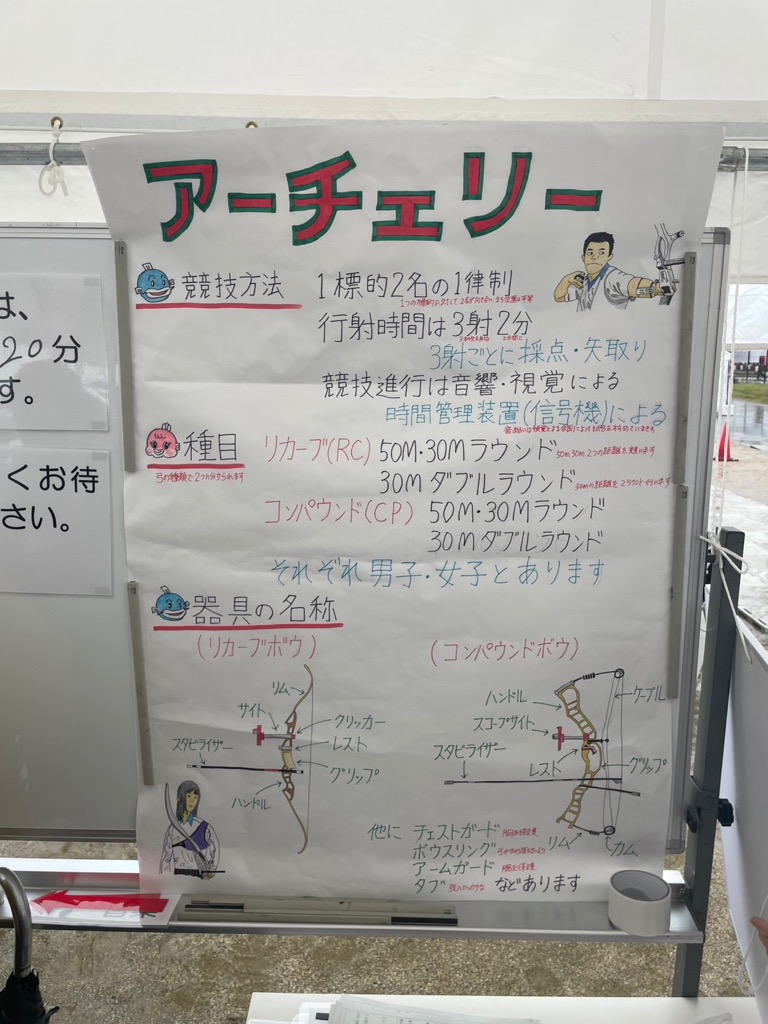 アーチェリー
競技方法
1標的2名の1律制
行射時間は3射2分
3射ごとに採点・矢取り
競技進行は音響・視覚による
時間管理装置(信号機)による
種目
弓の種類で2つに分けられます
リカーブ(RC) 50M・30Mラウンド
50m 30m 2つの距離を競います
30Mダブルラウンド
30mの距離を2ラウンド行います
コンパウンド(CP) 50M・30Mラウンド
30Mダブルラウンド
それぞれ男子・女子とあります
器具の名称
(リカーブボウ)
リム
サイト
クリッカー
スタビライザー
レスト
グリップ
ハンドル
(コンパウンドボウ)
ハンドル
ケーブル
スコープサイト
スタビライザー
レスト
グリップ
リム
カム
他に チェストガード
ボウスリング
アームガード
タブ などあります
は、
20分
す。
くお待
さい。